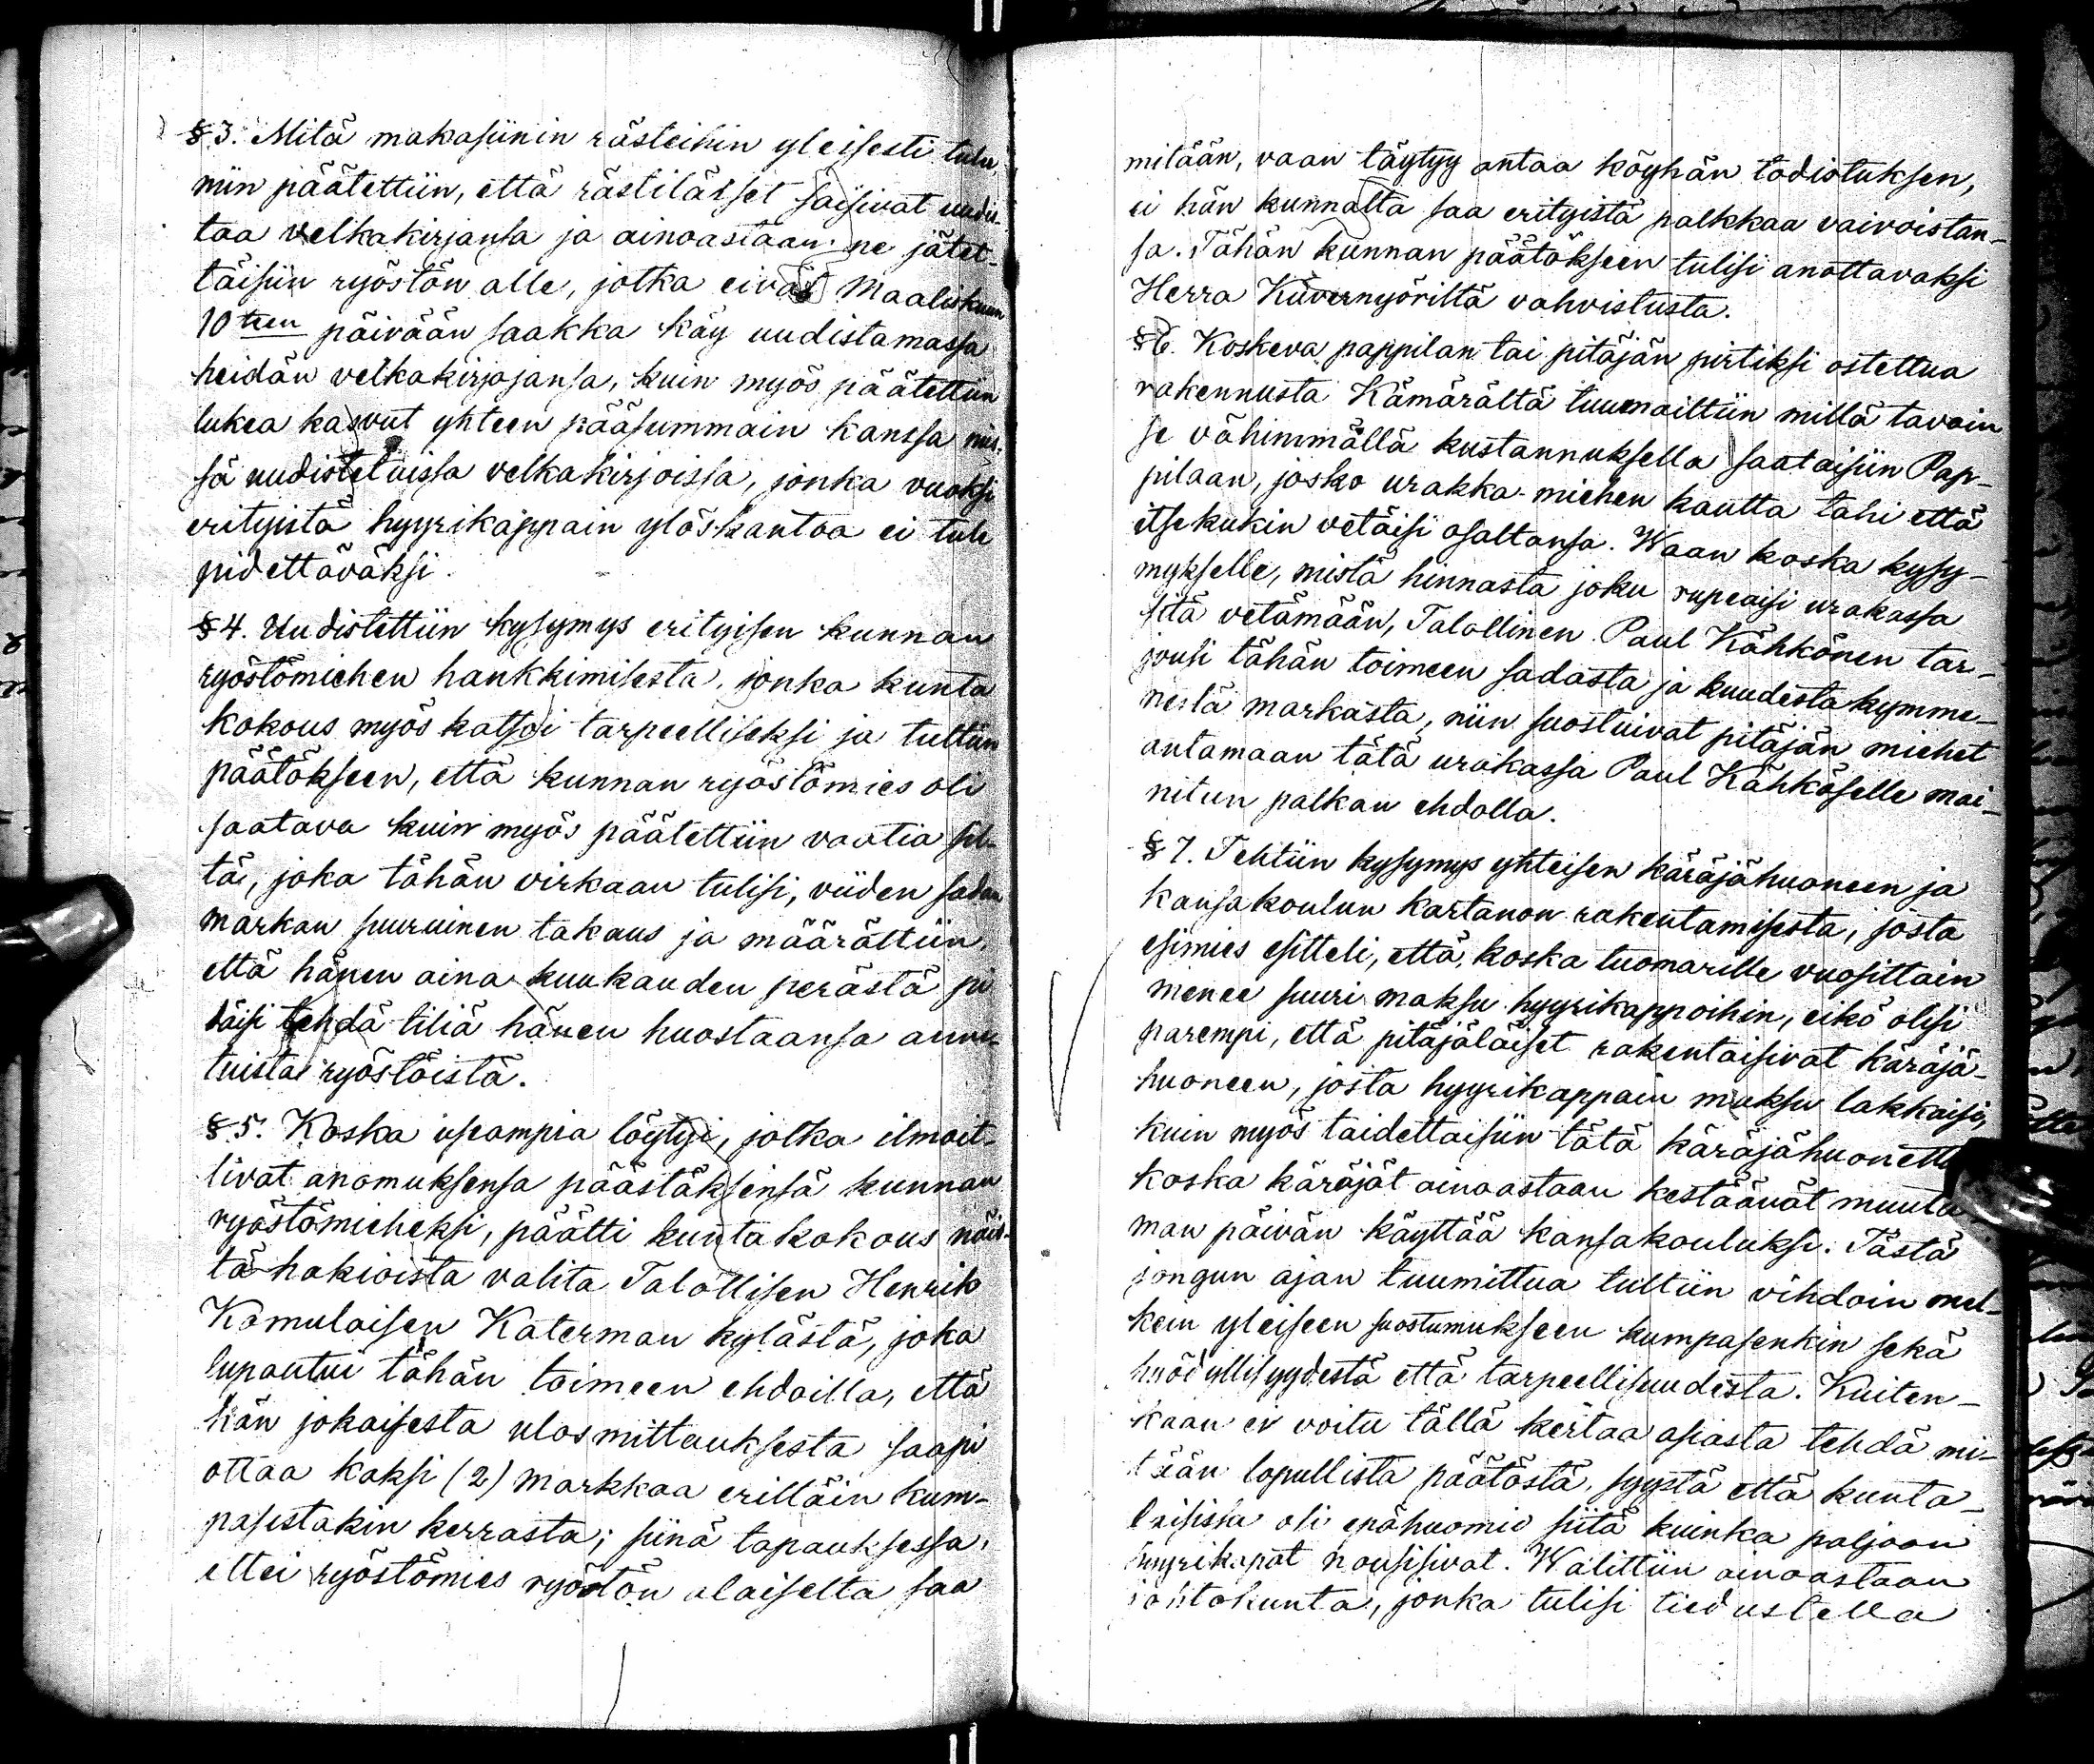 § 3. Mitä makasiinin rästeihin yleisesti tulee,
niin päätettiin, että rästiläiset saisivat uudis-
taa velkakirjansa ja ainoastaan ne jätet-
täisiin ryöstön alle, jotka eivät Maaliskuun
10 teen päivään saakka käy uudistamassa
heidän velkakirjojansa, kuin myös päätettiin
lukea kasvut yhteen pääsummain kanssa niis-
sä uudistetuissa velkakirjoissa, jonka vuoksi
erityistä hyyrikappain ylöskantoa ei tule
pidettäväksi.
§ 4. Uudistettiin kysymys erityisen kunnan
ryöstömiehen hankkimisesta, jonka kunta
kokous myös katsoi tarpeelliseksi ja tuttiin
päätökseen, että kunnan ryöstömies oli
saatava kuin myös päätettiin vaatia sil-
tä, joka tähän virkaan tulisi, viiden sadan
markan suuruinen takaus ja määrättiin,
että hänen aina kuukauden perästä pi
täisi tehdä tiliä hänen huostaansa annе-
tuista ryöstöistä.
§ 5. Koska useampia löytyi, jotka ilmoit-
tivat anomuksensa päästäksensä kunnan
ryöstömieheksi, päätti kuntakokous näis-
tä hakioista valita Talollisen Henrik
Komulaisen Katerman kylästä, joka
lupautui tähän toimeen ehdoilla, että
hän jokaisesta ulosmittauksesta saapi
ottaa kaksi (2) markkaa erittäin kum-
pasestakin kerrasta; siinä tapauksessa,
ettei ryöstömies ryöstön alaiselta saa
mitään, vaan täytyy antaa köyhän todistuksen,
ei hän kunnalta saa erityistä palkkaa vaivoistan-
sa. Tähän kunnan päätökseen tulisi anottavaksi
Herra Kuvernyöriltä vahvistusta.
§ 6. Koskeva pappilan tai pitäjän pirtiksi ostettua
rakennusta Kämärältä tuumailtiin millä tavoin
se vähimmällä kustannuksella saataisiin Pap-
pilaan, josko urakka-miehen kautta tahi että
itsekukin vetäisi osaltansa. Waan koska kysy-
mykselle, mistä hinnasta joku rupeaisi urakassa
sitä vetämään, Talollinen Paul Kähkönen tar-
jousi tähän toimeen sadasta ja kuudesta kymme-
nestä markasta, niin suostuivat pitäjän miehet
antamaan tätä urakassa Paul Kähköselle mai-
nitun palkan ehdolla.
§ 7. Tehtiin kysymys yhteisen käräjähuoneen ja
kansakoulun kartanon rakentamisesta, josta
esimies esitteli, että, koska tuomarille vuosittain
menee suuri maksu hyyrikappoihin, eikö olisi
parempi, että pitäjäläiset rakentaisivat käräjä-
huoneen, josta hyyrikappain maksu lakkaisi,
kuin myös taidettaisiin tätä käräjähuonetta
koska käräjät ainoastaan kestäävät muuta-
man päivän käyttää kansakouluksi. Tästä
jongun ajan tuumittua tultiin vihdoin mel-
kein yleiseen suostumukseen kumpasenkin sekä
hyödyllisyydestä että tarpeellisuudesta. Kuiten-
kaan ei voitu tällä kertaa asiasta tehdä mi-
tään lopullista päätöstä, syystä että kunta-
laisissa oli epähuomio siitä kuinka paljoon
hyyrikapat nousisivat. Walittiin ainoastaan
johtokunta, jonka tulisi tiedustella